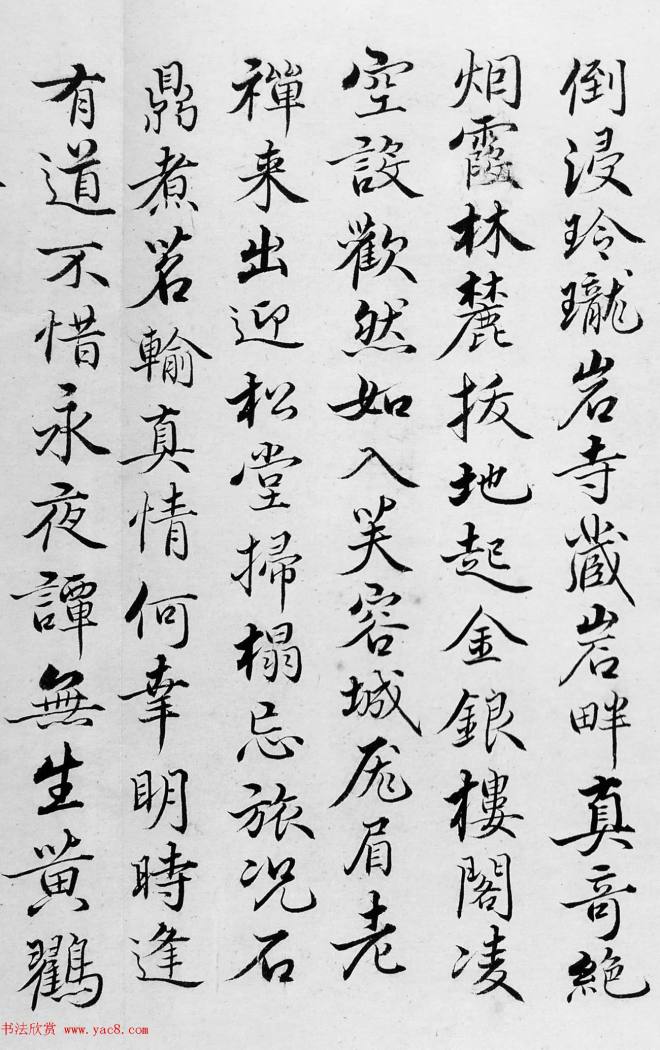 倒浸玲瓏岩寺藏岩畔真奇絶
烟霞林麓拔地起金銀樓閣凌
空設歡然如入芙容城厖眉老
禪来出迎松堂掃榻忘旅况石
鼎煮茗輸真情何幸明時逢
有道不惜永夜譚無生黄鸐
书法欣赏 www.yac8.com